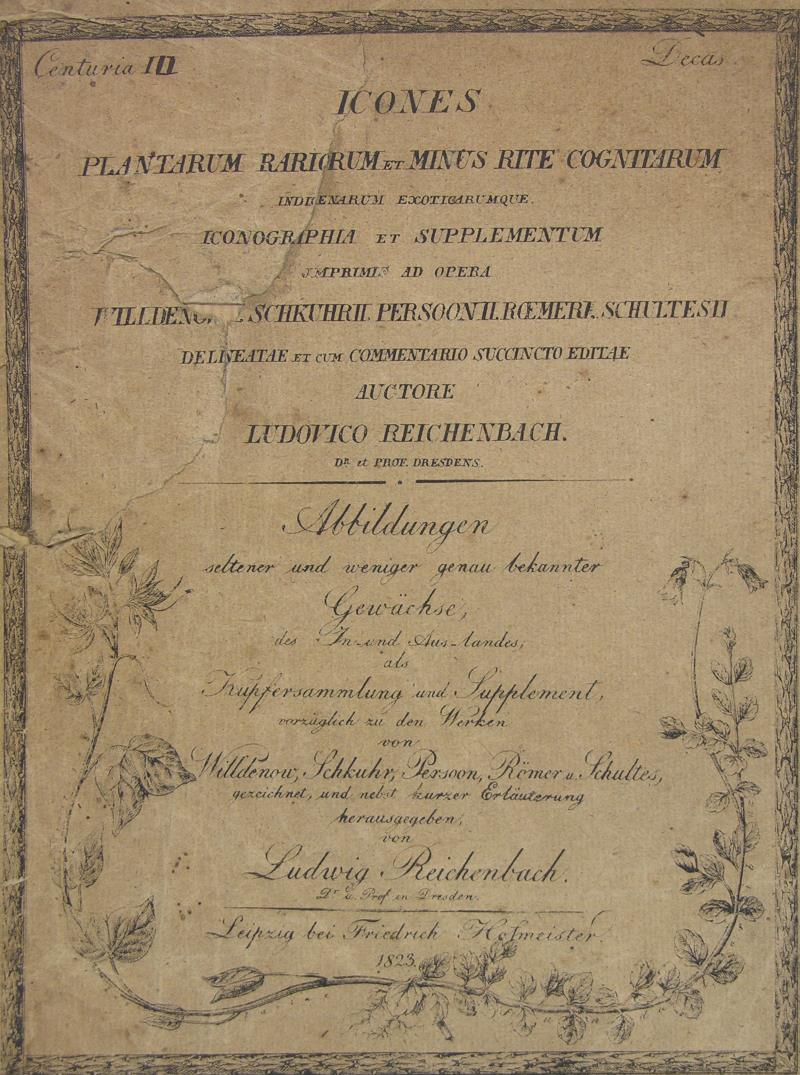 Centuria III
Decas
ICONES
PLANTARUM RARIORUM ET MINUS RITE COGNITARUM
INDIGENARUM EXOTICARUMQUE.
ICONOGRAPHIA ET SUPPLEMENTUM
IMPRIMIS AD OPERA
SCHKUHRII. PERSOONII. RŒMERI. SCHULTESII
DELINEATAE ET CUM COMMENTARIO SUCCINCTO EDITAE
AUCTORE
LUDOVICO REICHENBACH.
DR. et PROF. DRESDENS.
Abbildungen
seltener und weniger genau bekannter
Gewächse,
des In-und Aus-landes,
als
Kupfersammlung und Supplement,
vorzüglich zu den Werken
von
Willdenow, Schkuhr, Persoon, Römer u. Schultes,
gezeichnet, und nebst kurzer Erläuterung
herausgegeben,
von
Ludwig Reichenbach.
Dr. u. Prof in Dresden.
Leipzig bei Friedrich Hofmeister.
1823.